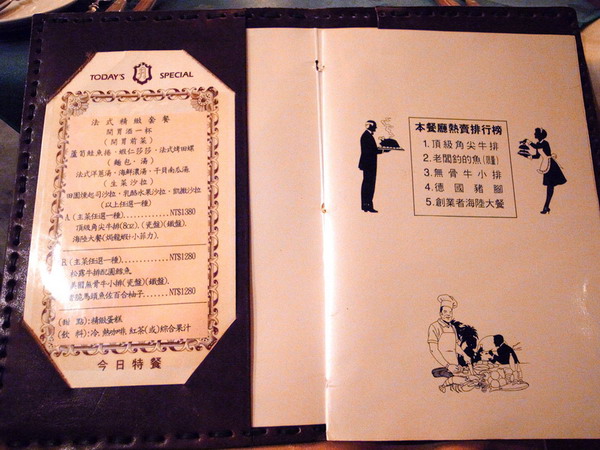 TODAY'S SPECIAL
法式精緻套餐
開胃酒一杯
(開胃前菜)
蘆筍鮭魚捲、蝦仁莎莎、法式烤田螺
(麵包、湯)
法式洋蔥湯、海鮮濃湯、干貝南瓜湯
(生菜沙拉)
田園燻起司沙拉、乳酪水果沙拉、凱撒沙拉
(以上任選一種)
A (主菜任選一種)..............NT$1380
頂級角尖牛排(8oz)、(瓷盤)(鐵盤)、
海陸大餐(焗龍蝦+小菲力)、
B (主菜任選一種)..............NT$1280
松露牛排配圓鱈魚
無骨牛小排(瓷盤)(鐵盤)、
馬頭魚佐百合柚子.......NT$1280
(甜 點):精緻蛋糕
(飲 料):冷、熱咖啡、紅茶(或)綜合果汁
今日特餐
本餐廳熱賣排行榜
1.頂級角尖牛排
2.老闆釣的魚
3.無骨牛小排
4.德國豬腳
5.創業者海陸大餐